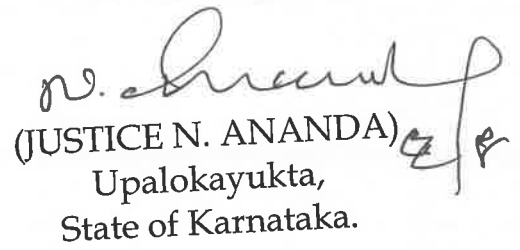 N. Ananda
(JUSTICE N. ANANDA)
Upalokayukta,
State of Karnataka.